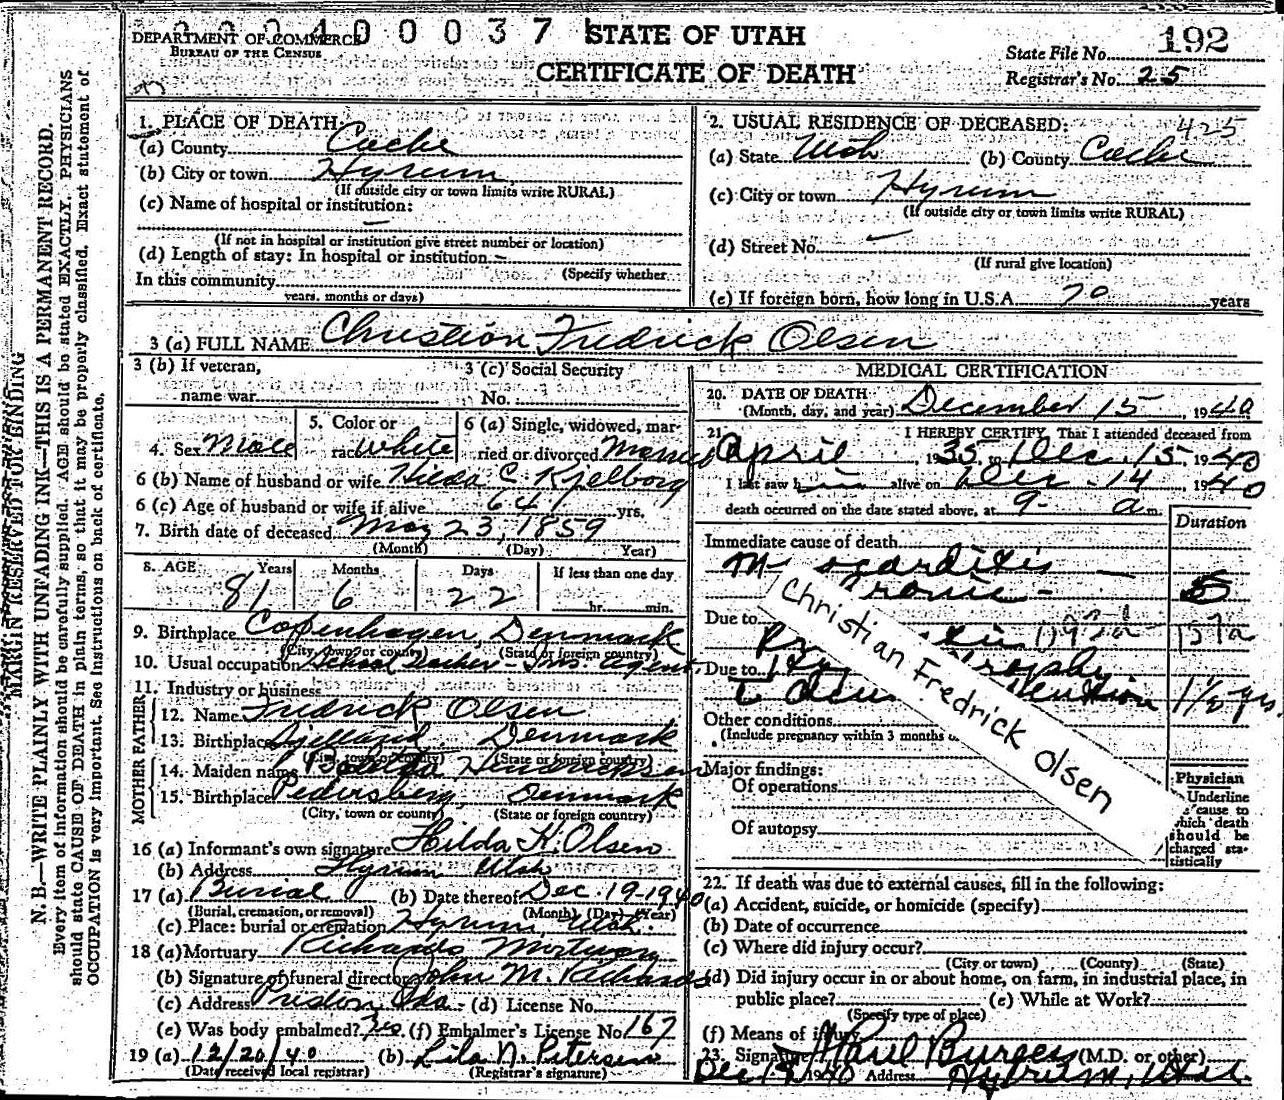 2 2 2 4 0 0 0 3 7
DEPARTMENT OF COMMERCE
BUREAU OF THE CENSUS
STATE OF UTAH
CERTIFICATE OF DEATH
State File No. 192
Registrar's No. 25
MARGIN RESERVED FOR BINDING
N. B.—WRITE PLAINLY WITH UNFADING INK—THIS IS A PERMANENT RECORD.
Every item of information should be carefully supplied. AGE should be stated EXACTLY. PHYSICIANS
should state CAUSE OF DEATH in plain terms, so that it may be properly classified. Exact statement of
OCCUPATION is very important. See instructions on back of certificate.
1. PLACE OF DEATH:
(a) County Cache
(b) City or town Hyrum
(If outside city or town limits write RURAL)
(c) Name of hospital or institution:
(If not in hospital or institution give street number or location)
(d) Length of stay: In hospital or institution
(Specify whether
In this community
years, months or days)
2. USUAL RESIDENCE OF DECEASED: 425
(a) State Utah (b) County Cache
(c) City or town Hyrum
(If outside city or town limits write RURAL)
(d) Street No.
(If rural give location)
(e) If foreign born, how long in U.S.A. 70 years
3 (a) FULL NAME Christian Fredrick Olsen
3 (b) If veteran,
name war
3 (c) Social Security
No.
4. Sex Male
5. Color or
race White
6 (a) Single, widowed, mar-
ried or divorced Married
6 (b) Name of husband or wife Hilda C. Kjelborg
6 (c) Age of husband or wife if alive 64 yrs.
7. Birth date of deceased May 23, 1859
(Month) (Day) Year)
8. AGE Years Months Days If less than one day
81 6 22 hr. min.
9. Birthplace Copenhagen Denmark
(City, town or county) (State or foreign country)
10. Usual occupation School Teacher - Ins. agent
11. Industry or business
FATHER
12. Name Fredrick Olsen
13. Birthplace Sjelland, Denmark
(City, town or county) (State or foreign country)
MOTHER
14. Maiden name Hendricksen
15. Birthplace Pedersberg, Denmark
(City, town or county) (State or foreign country)
16 (a) Informant's own signature Hilda K. Olsen
(b) Address Hyrum Utah
17 (a) Burial (b) Date thereof Dec. 19-1940
(Burial, cremation, or removal) (Month) (Day) (Year)
(c) Place: burial or cremation Hyrum, Utah.
18 (a) Mortuary Richards Mortuary
(b) Signature of funeral director John M. Richards
(c) Address Preston, Ida. (d) License No.
(e) Was body embalmed? Yes (f) Embalmer's License No. 167
19 (a) 12/20/40 (b) Lila N. Petersen
(Date received local registrar) (Registrar's signature)
MEDICAL CERTIFICATION
20. DATE OF DEATH
(Month, day, and year) December 15, 1940
21. I HEREBY CERTIFY, That I attended deceased from
April, 1935 to Dec. 15, 1940
I last saw him alive on Dec. 14 1940
death occurred on the date stated above, at 9- a m.
Duration
Immediate cause of death
5
Due to
Due to
1½ yrs.
Other conditions
(Include pregnancy within 3 months
Christian Fredrick Olsen
Major findings:
Of operations
Of autopsy
Physician
Underline
cause to
which death
should be
charged sta-
tistically
22. If death was due to external causes, fill in the following:
(a) Accident, suicide, or homicide (specify)
(b) Date of occurrence
(c) Where did injury occur?
(City or town) (County) (State)
(d) Did injury occur in or about home, on farm, in industrial place, in
public place? (e) While at Work?
(Specify type of place)
(f) Means of injury
23. Signature Burgess (M.D. or other)
Address Hyrum, Utah